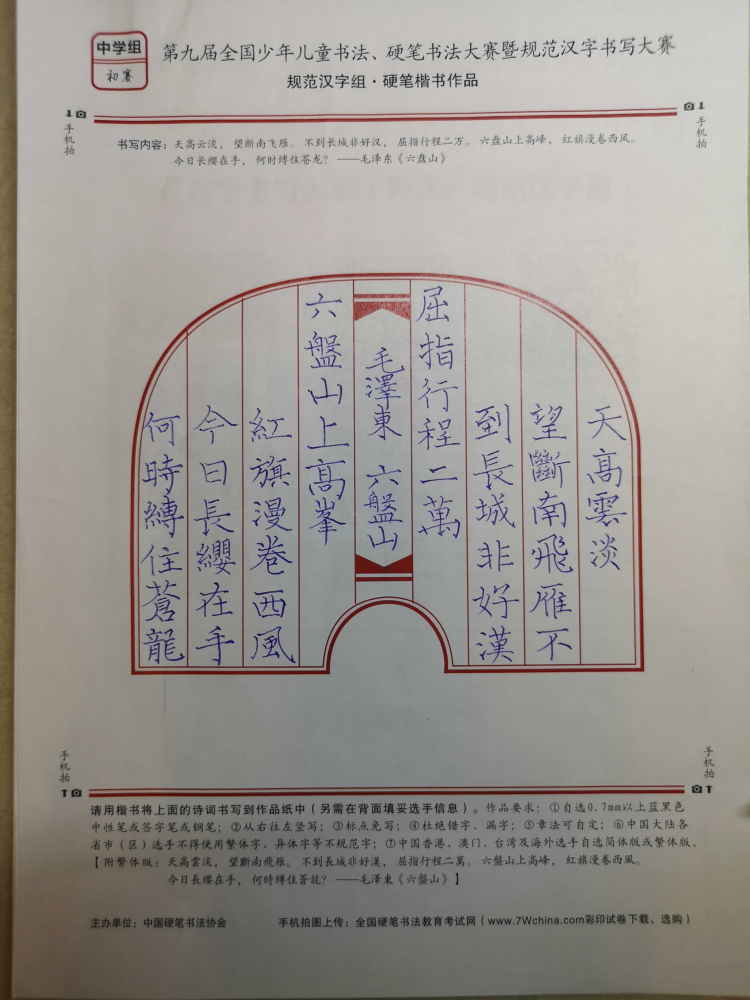 中学组
初赛
第九届全国少年儿童书法、硬笔书法大赛暨规范汉字书写大赛
规范汉字组·硬笔楷书作品
手机拍
手机拍
书写内容：天高云淡，望断南飞雁。不到长城非好汉，屈指行程二万。六盘山上高峰，红旗漫卷西风。
今日长缨在手，何时缚住苍龙？——毛泽东《六盘山》
天高雲淡
望斷南飛雁不
到長城非好漢
屈指行程二萬
毛澤東 六盤山
六盤山上高峯
紅旗漫卷西風
今日長纓在手
何時縛住蒼龍
手机拍
手机拍
请用楷书将上面的诗词书写到作品纸中（另需在背面填妥选手信息）。作品要求：①自选0.7mm以上蓝黑色
中性笔或签字笔或钢笔；②从右往左竖写；③标点免写；④杜绝错字、漏字；⑤章法可自定；⑥中国大陆各
省市（区）选手不得使用繁体字、异体字等不规范字；⑦中国香港、澳门、台湾及海外选手自选简体版或繁体版。
【附繁体版：天高雲淡，望斷南飛雁。不到長城非好漢，屈指行程二萬。六盤山上高峰，紅旗漫卷西風。
今日長纓在手，何時縛住蒼龍？——毛澤東《六盤山》】
主办单位：中国硬笔书法协会
手机拍图上传：全国硬笔书法教育考试网（www.7Wchina.com彩印试卷下载、选购）